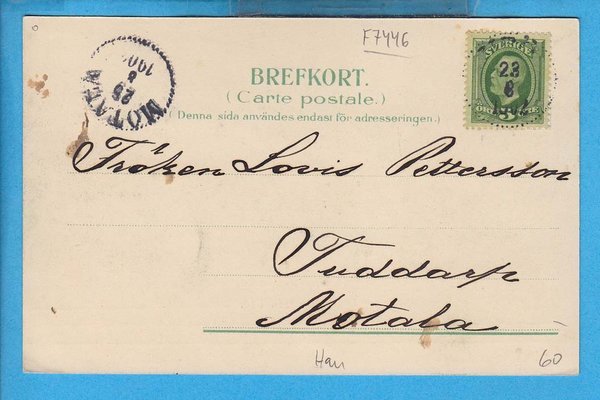 F7446
SVERIGE
23
8
MOTALA
25
8
BREFKORT.
(Carte postale.)
(Denna sida användes endast för adresseringen.)
Fröken Lovis Pettersson
Tuddarp
Motala
Han
60